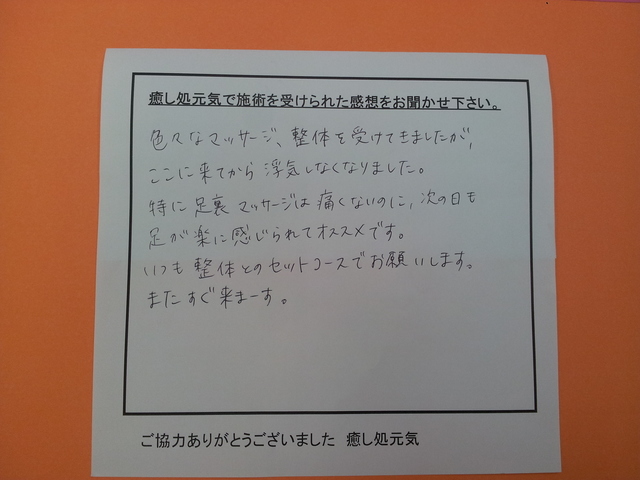 癒し処元気で施術を受けられた感想をお聞かせ下さい。
色々なマッサージ、整体を受けてきましたが、
ここに来てから浮気しなくなりました。
特に足裏マッサージは痛くないのに、次の日も
足が楽に感じられてオススメです。
いつも整体とのセットコースでお願いします。
またすぐ来まーす。
ご協力ありがとうございました 癒し処元気